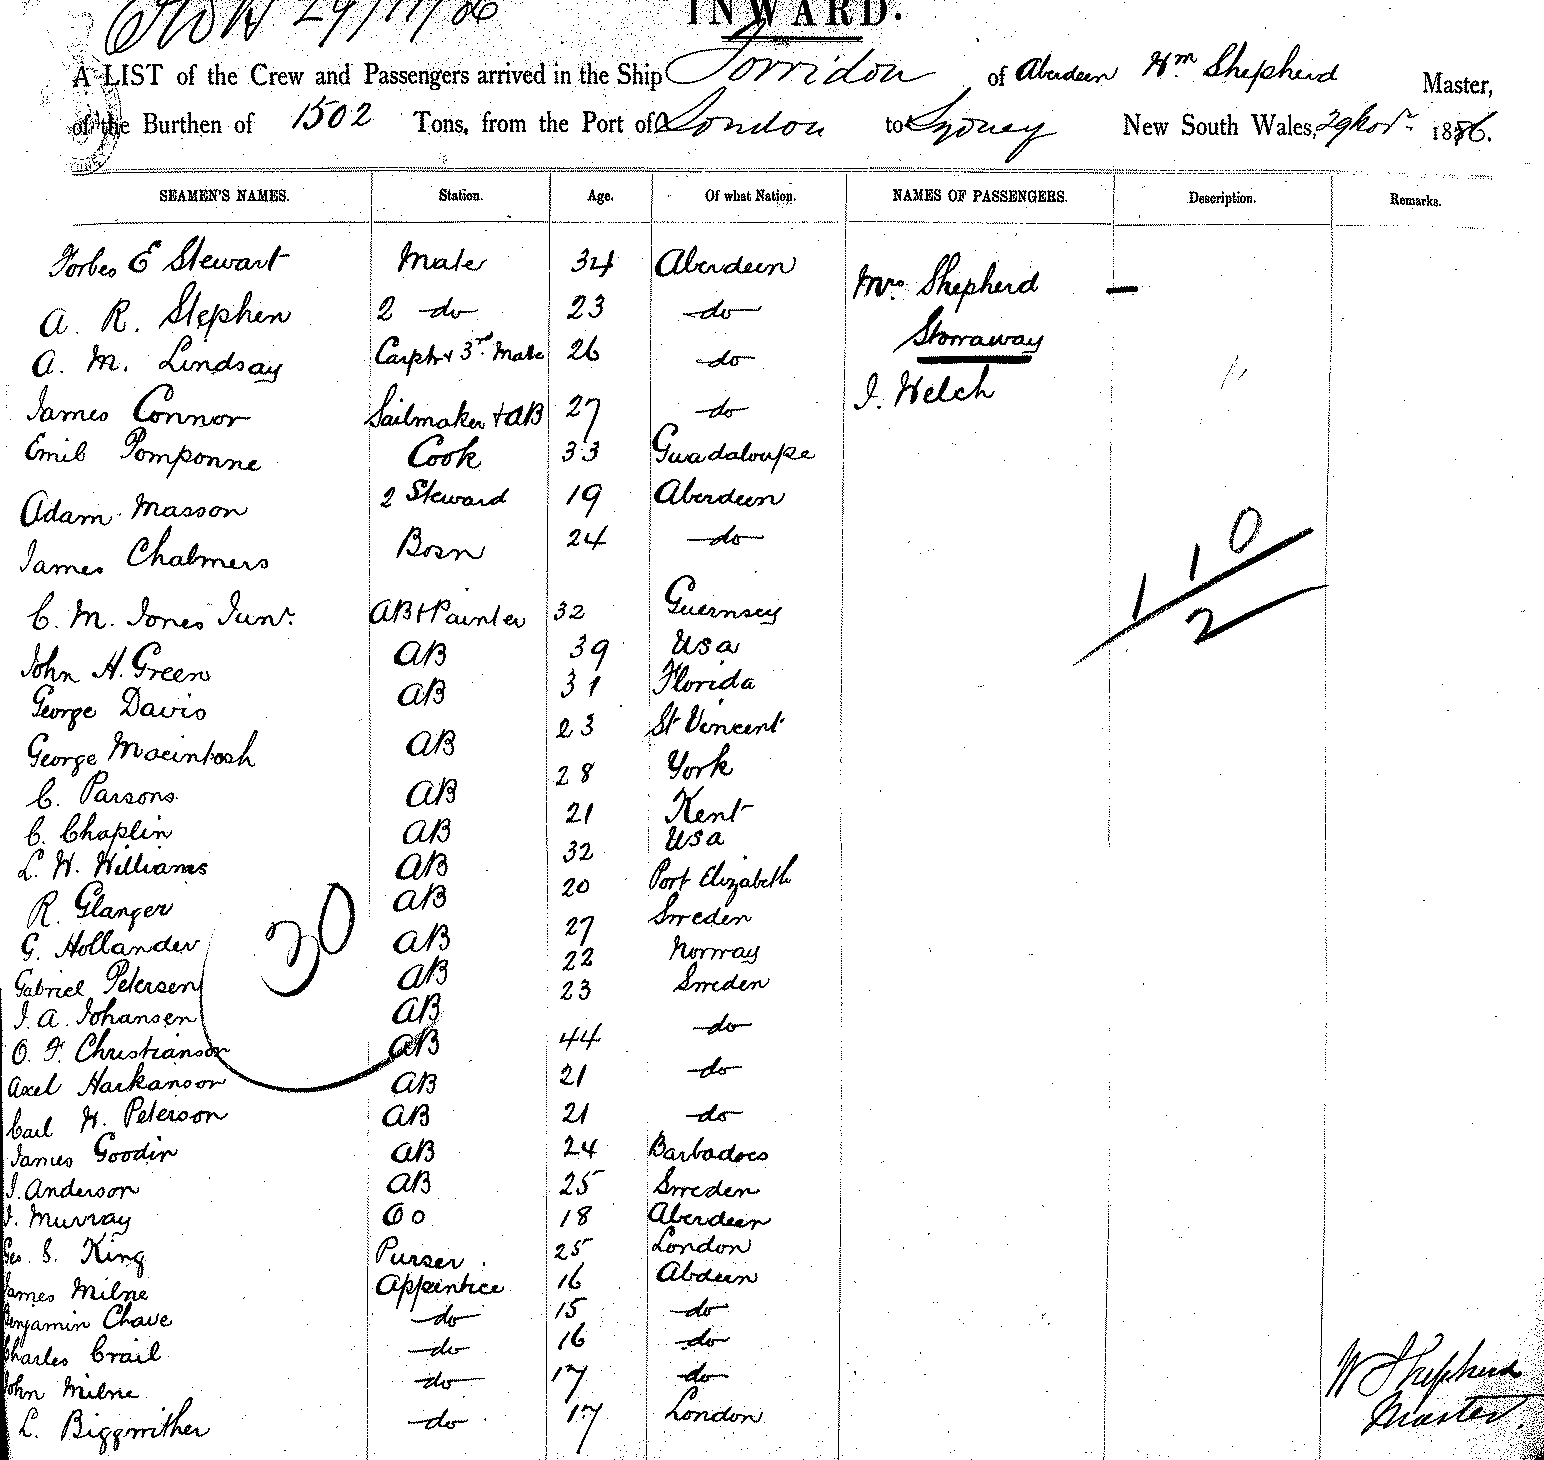 29/11/86
INWARD.
A LIST of the Crew and Passengers arrived in the Ship Torridon of Aberdeen Wm Shepherd Master,
of the Burthen of 1502 Tons, from the Port of London to Sydney New South Wales, 29 Novr 1886.
SEAMEN'S NAMES. Station. Age. Of what Nation. NAMES OF PASSENGERS. Description. Remarks.
Forbes E Stewart Mate 34 Aberdeen
Mrs Shepherd —
A. R. Stephen 2 do 23 do
Storraway
A. M. Lindsay Carptr & 3rd Mate 26 do
J. Welch
James Connor Sailmaker & AB 27 do
Emil Pomponne Cook 33 Guadaloupe
Adam Masson 2 Steward 19 Aberdeen
James Chalmers Bosn 24 do
1 1 0
2
C. M. Jones Junr. AB & Painter 32 Guernsey
John H. Green AB 39 Usa
George Davis AB 31 Florida
George Macintosh AB 23 St Vincent
C. Parsons AB 28 York
C. Chaplin AB 21 Kent
L. W. Williams AB 32 Usa
R. Glanger AB 20 Port Elizabeth
30
G. Hollander AB 27 Sweden
Gabriel Petersen AB 22 Norway
J. A. Johansen AB 23 Sweden
O. F. Christianson AB 44 do
Axel Harkanson AB 21 do
Carl W. Peterson AB 21 do
James Goodin AB 24 Barbadoes
J. Anderson AB 25 Sweden
J. Murray OO 18 Aberdeen
Geo. S. King Purser. 25 London
James Milne Apprentice 16 Abdeen
Benjamin Chave do 15 do
Charles Crail do 16 do
John Milne do 17 do
L. Biggwither do 17 London
W Shepherd
Master.